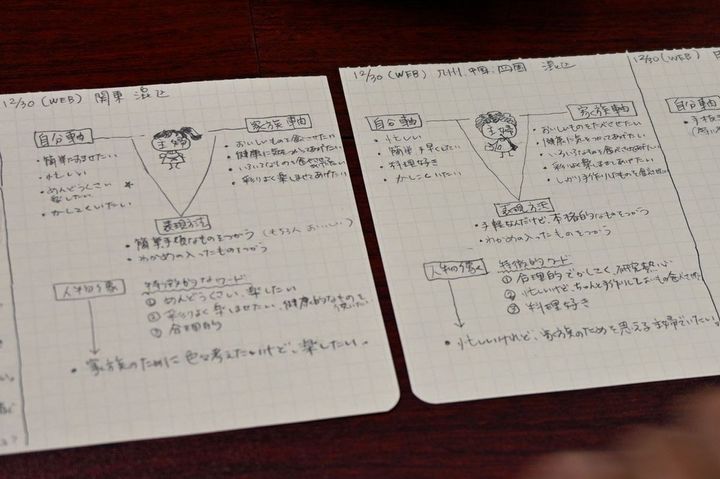 12/30 (WEB) 関東 混込
自分軸
・簡単にすませたい
・忙しい
・めんどうくさい
楽したい
・かしこくいたい
主婦
家族軸
・おいしいものを食べさせたい
・健康に気をつかってあげたい
・いろいろなものを食べさせたい
・彩りよく楽しませてあげたい
表現方法
・簡単手頃なものをつかう (もちろん おいしい)
・わかめの入ったものをつかう
人物像
特徴的なワード
① めんどうくさい、楽したい
② 彩りよく楽しませたい、健康的なものを
③ 合理的
・家族のために色々考えたいけど、楽したい。
12/30 (WEB) 九州、中国、四国 混込
自分軸
・忙しい
・簡単手早くしたい
・料理好き
・かしこくいたい
主婦
家族軸
・おいしいものをたべさせたい
・健康に気をつかってあげたい
・いろいろなものを食べさせてあげたい
・彩りよく楽しませてあげたい
・しっかり手作りのものを食べさせ
表現方法
・手軽なんだけど、本格的なものをつかう
・わかめの入ったものをつかう
人物像
特徴的ワード
① 合理的でかしこく、研究熱心
② 忙しいけど、ちゃんと手作りしておいしいもの食べさせ
③ 料理好き
・忙しいけれど、家族のためを思える主婦でいたい。
12/30 (WEB)
自分軸